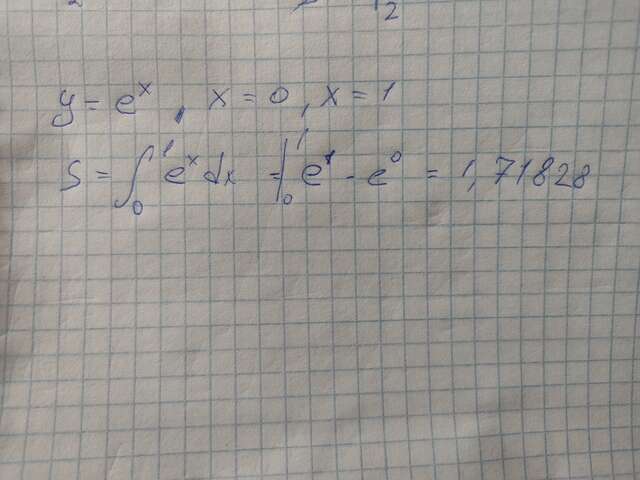 2
y = eˣ, x = 0, x = 1
S = ∫₀¹ eˣ dx = |₀¹ e¹ - e⁰ = 1,71828